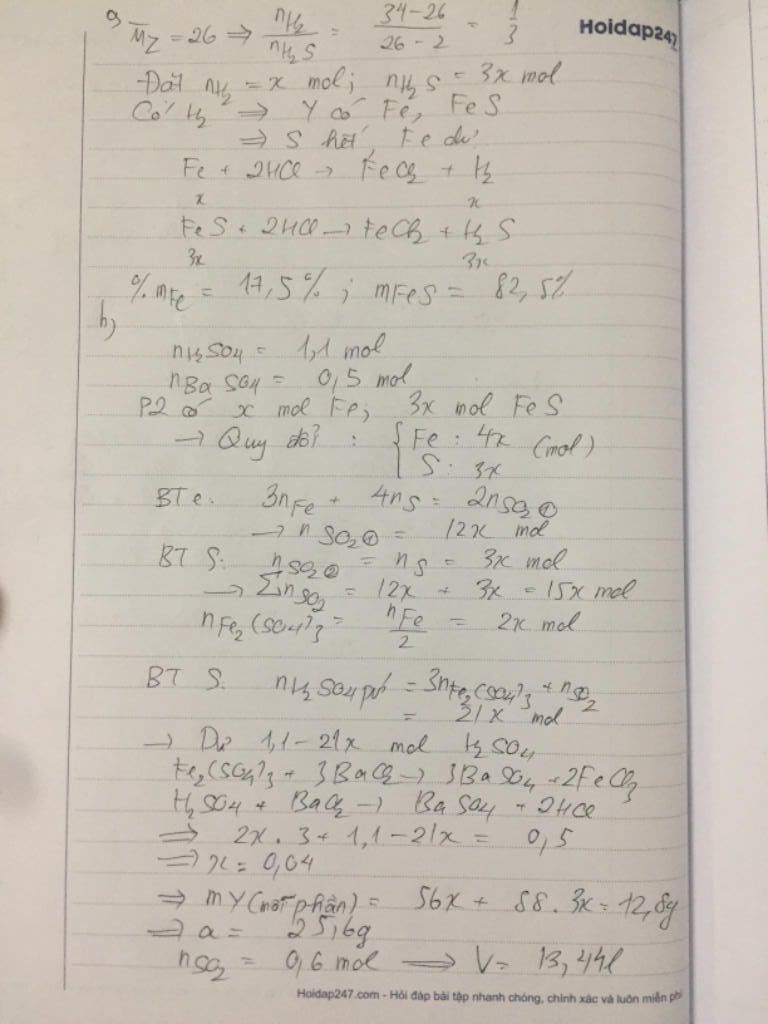 a) M̅Z = 26 ⇒ nH2/nH2S = (34-26)/(26-2) = 1/3
Hoidap247
Đặt nH2 = x mol; nH2S = 3x mol
Có H2 ⇒ Y có Fe, FeS
⇒ S hết, Fe dư
Fe + 2HCl → FeCl2 + H2
x x
FeS + 2HCl → FeCl2 + H2S
3x 3x
%mFe = 17,5%; mFeS = 82,5%
b)
nH2SO4 = 1,1 mol
nBaSO4 = 0,5 mol
P2 có x mol Fe; 3x mol FeS
→ Quy đổi : { Fe : 4x (mol)
S : 3x
BTe: 3nFe + 4nS = 2nSO2①
→ nSO2① = 12x mol
BT S: nSO2② = nS = 3x mol
→ ΣnSO2 = 12x + 3x = 15x mol
nFe2(SO4)3 = nFe/2 = 2x mol
BT S: nH2SO4 pư = 3nFe2(SO4)3 + nSO2
= 21x mol
→ Dư 1,1-21x mol H2SO4
Fe2(SO4)3 + 3BaCl2 → 3BaSO4 + 2FeCl3
H2SO4 + BaCl2 → BaSO4 + 2HCl
⇒ 2x.3 + 1,1-21x = 0,5
⇒ x = 0,04
⇒ mY(mỗi phần) = 56x + 88.3x = 12,8g
⇒ a = 25,6g
nSO2 = 0,6 mol → V = 13,44l
Hoidap247.com - Hỏi đáp bài tập nhanh chóng, chính xác và luôn miễn phí